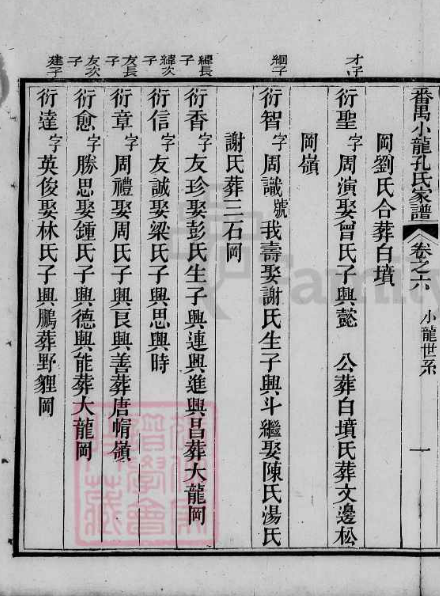 番禺小龍孔氏家譜
卷之六
小龍世系
一
岡劉氏合葬白墳
才子
衍聖字周演娶曾氏子興懿 公葬白墳氏葬文邊松
岡嶺
綱子
衍智字周識號我壽娶謝氏生子興斗繼娶陳氏湯氏
謝氏葬三石岡
緯長子
衍香字友珍娶彭氏生子興連興進興昌葬大龍岡
緯次子
衍信字友誠娶梁氏子興思興時
友長子
衍章字周禮娶周氏子興良興善葬唐帽嶺
友次子
衍愈字勝思娶鍾氏子興德興能葬大龍岡
建子
衍達字英俊娶林氏子興鵬葬野貍岡